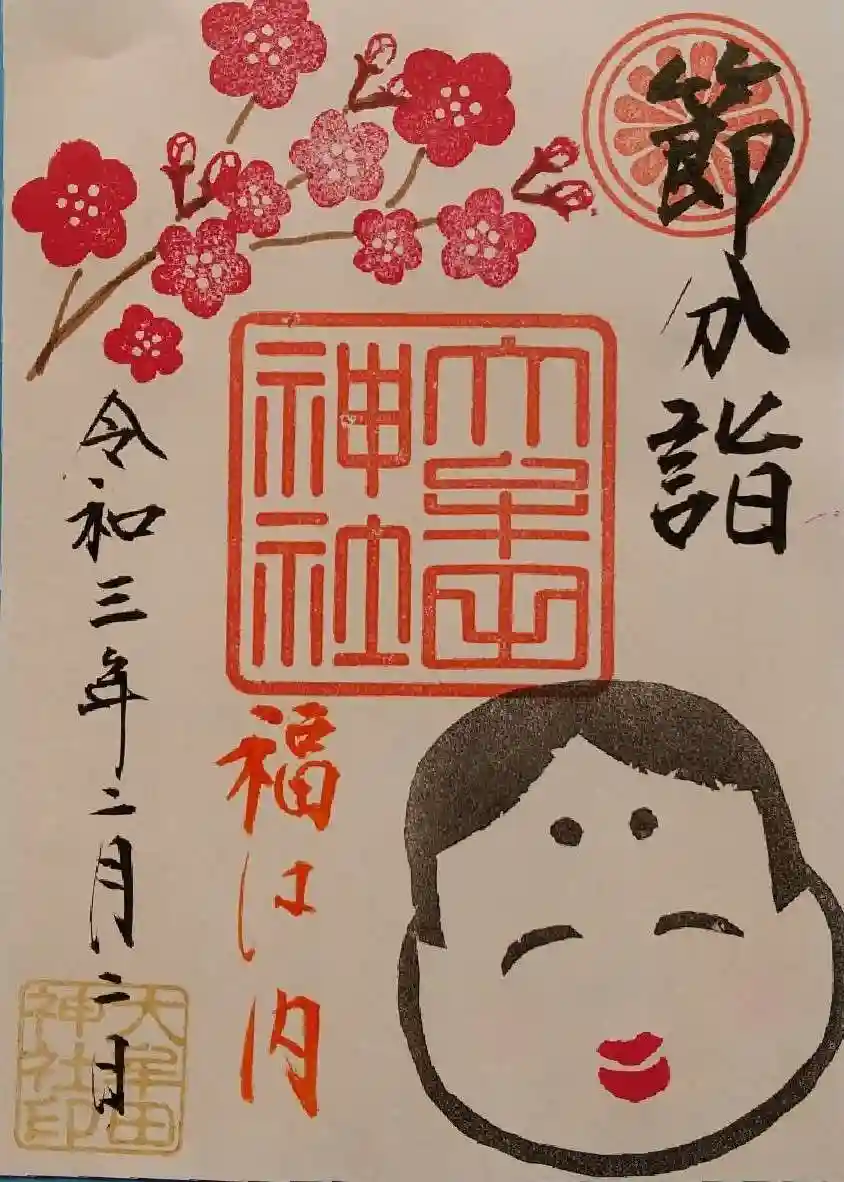 節分詣
大牟田
神社
福は内
令和三年二月二日
大牟田
神社印